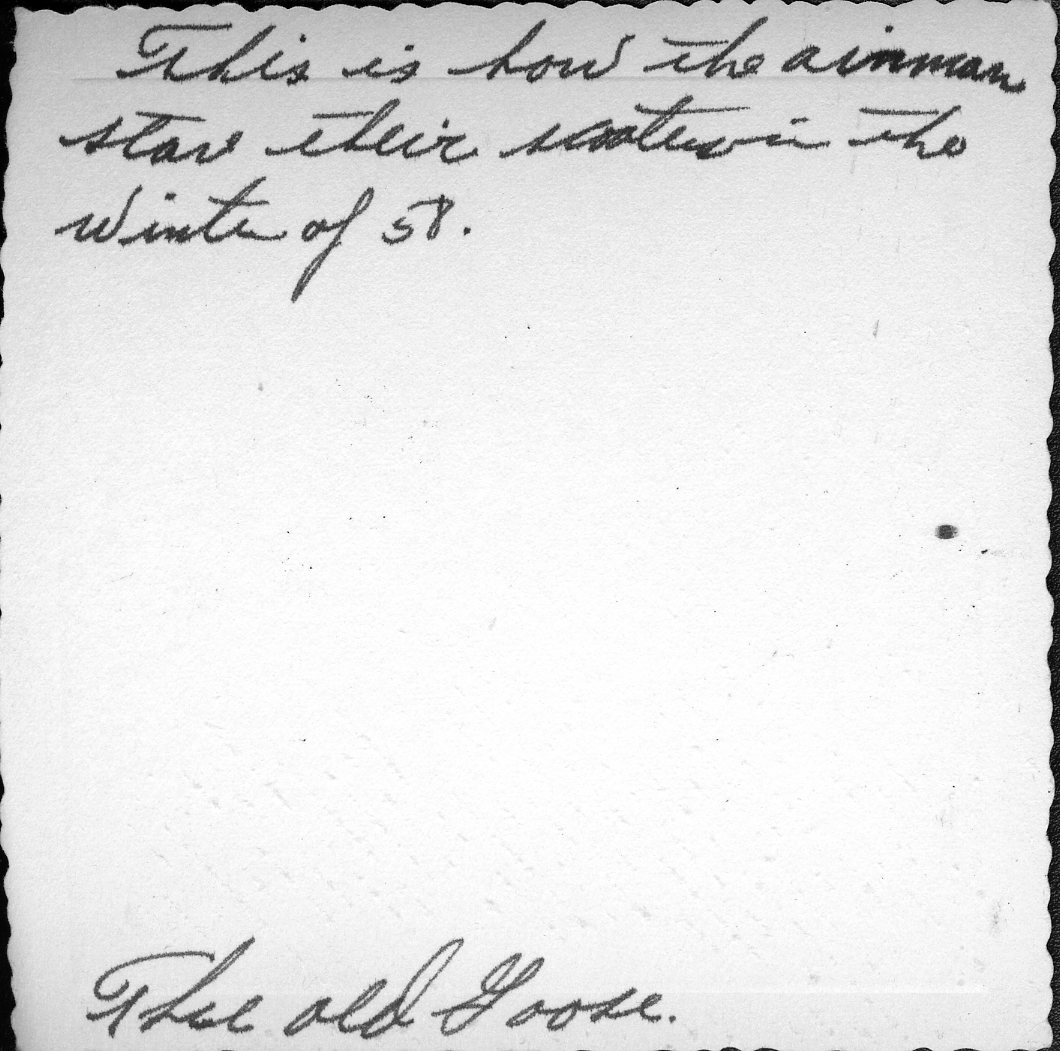 This is how the ainman
stav their scooters in the
Winter of 58.
The old Goose.